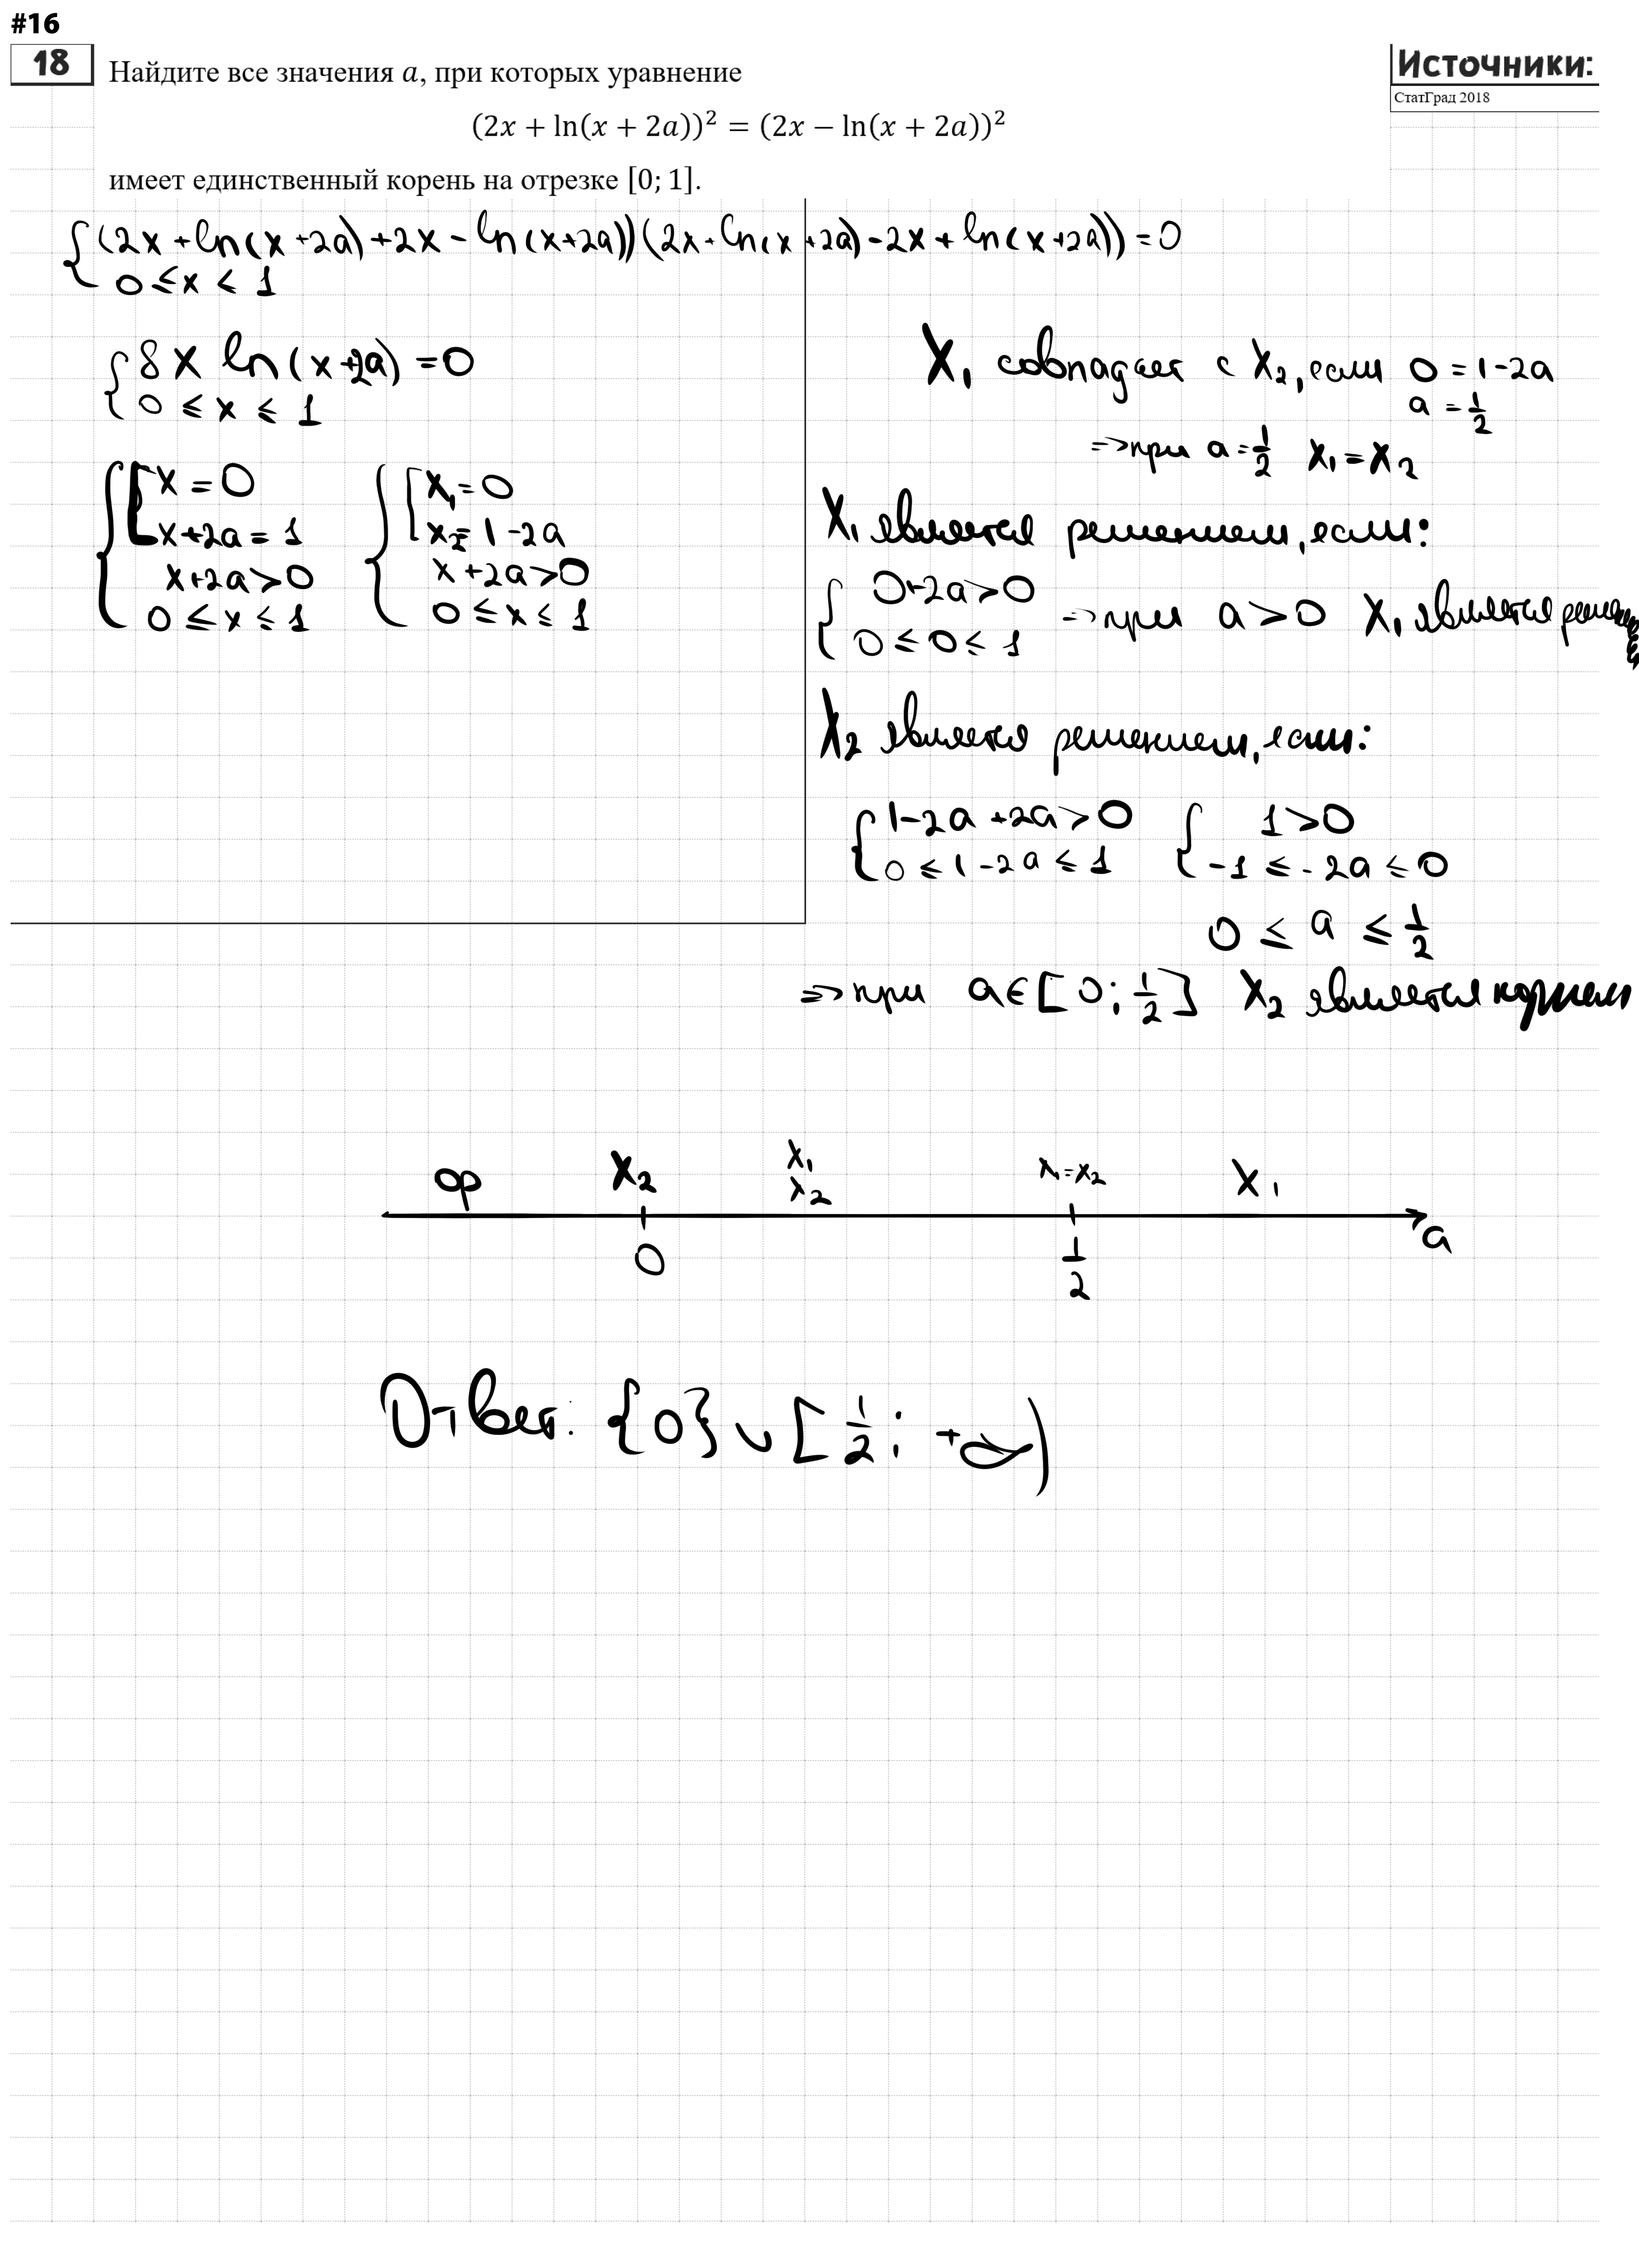 #16
18
Найдите все значения a, при которых уравнение
(2x + ln(x + 2a))² = (2x − ln(x + 2a))²
имеет единственный корень на отрезке [0; 1].
Источники:
СтатГрад 2018
{ (2x + ln(x + 2a) + 2x - ln(x+2a)) (2x + ln(x + 2a) - 2x + ln(x+2a)) = 0
0 ≤ x ≤ 1
{ 8x ln(x+2a) = 0
0 ≤ x ≤ 1
{ [ x = 0
x+2a = 1
x+2a > 0
0 ≤ x ≤ 1
{ [ x₁ = 0
x₂ = 1-2a
x+2a > 0
0 ≤ x ≤ 1
X₁ совпадает с X₂, если 0 = 1-2a
a = 1/2
⇒ при a = 1/2 x₁ = x₂
X₁ является решением, если:
{ 0+2a > 0
0 ≤ 0 ≤ 1
⇒ при a > 0 X₁ является решением
X₂ является решением, если:
{ 1-2a+2a > 0
0 ≤ 1-2a ≤ 1
{ 1 > 0
-1 ≤ -2a ≤ 0
0 ≤ a ≤ 1/2
⇒ при a ∈ [0; 1/2] X₂ является корнем
X₂ x₁ x₂ x₁ = x₂ X₁
0 1/2 a
Ответ: {0} ∪ [1/2; +∞)